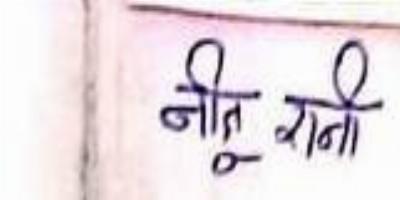 नीतू रानी